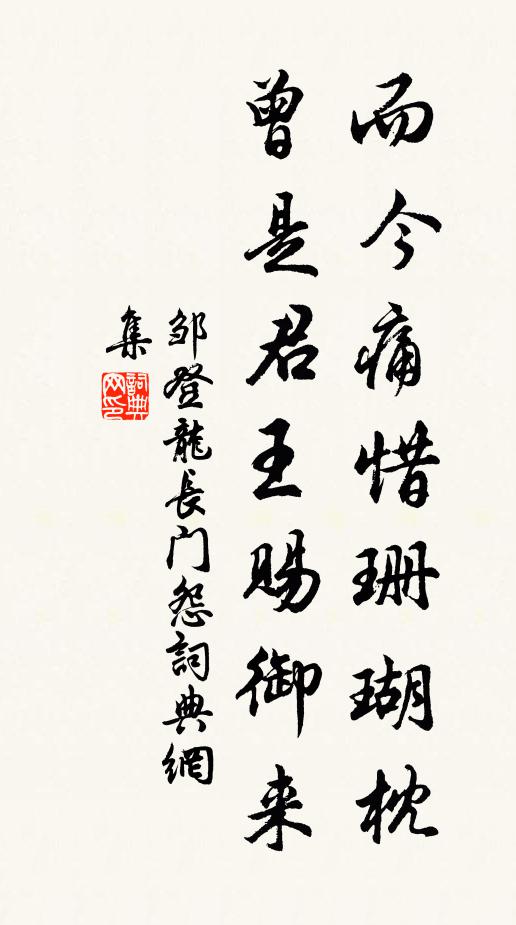 而今痛惜珊瑚枕
曾是君王賜御来
邹登龍長门怨詞典網
集
詞典
网印